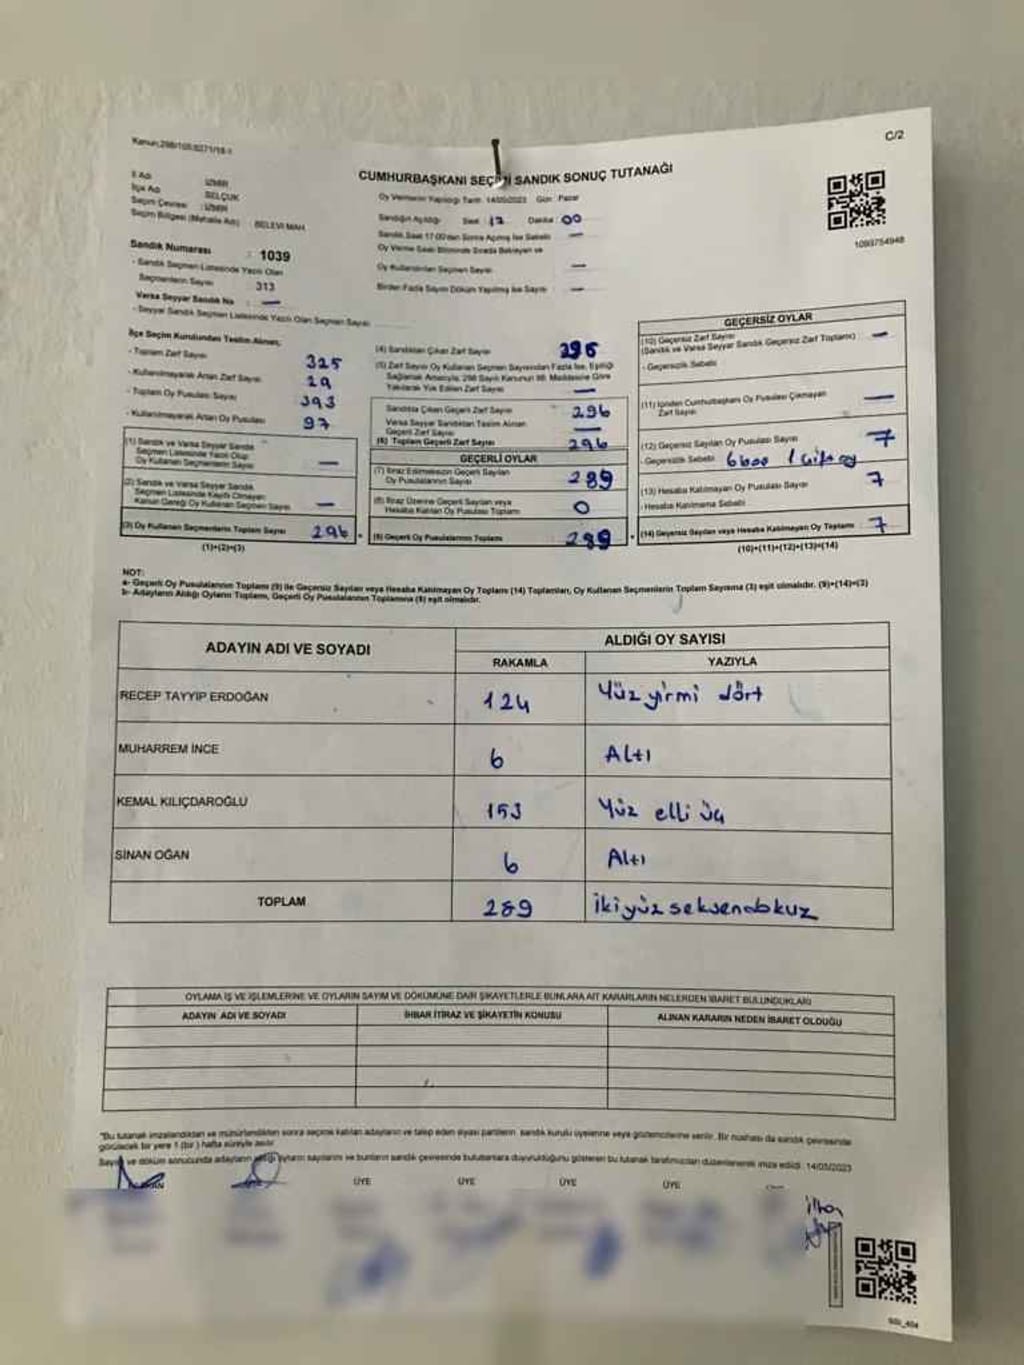 Kanun:298/105;6271/18-1
C/2
CUMHURBAŞKANI SEÇİMİ SANDIK SONUÇ TUTANAĞI
İl Adı : İZMİR
İlçe Adı : SELÇUK
Seçim Çevresi : İZMİR
Seçim Bölgesi (Mahalle Adı) : BELEVİ MAH.
Oy Vermenin Yapıldığı Tarih 14/05/2023 Gün : Pazar
Sandığın Açıldığı Saat : 17 Dakika : 00
Sandık Saat 17:00'den Sonra Açılmış İse Sebebi —
Oy Verme Saati Bitiminde Sırada Bekleyen ve
Oy Kullandırılan Seçmen Sayısı —
Birden Fazla Sayım Döküm Yapılmış İse Sayısı —
1093754948
Sandık Numarası : 1039
- Sandık Seçmen Listesinde Yazılı Olan
Seçmenlerin Sayısı 313
Varsa Seyyar Sandık No : —
- Seyyar Sandık Seçmen Listesinde Yazılı Olan Seçmen Sayısı :
İlçe Seçim Kurulundan Teslim Alınan;
- Toplam Zarf Sayısı 325
- Kullanılmayarak Artan Zarf Sayısı 29
- Toplam Oy Pusulası Sayısı 393
- Kullanılmayarak Artan Oy Pusulası 97
(1) Sandık ve Varsa Seyyar Sandık
Seçmen Listesinde Yazılı Olup
Oy Kullanan Seçmenlerin Sayısı —
(2) Sandık ve Varsa Seyyar Sandık
Seçmen Listesinde Kayıtlı Olmayan
Kanun Gereği Oy Kullanan Seçmenlerin Sayısı —
(3) Oy Kullanan Seçmenlerin Toplam Sayısı 296
(1)+(2)=(3)
(4) Sandıktan Çıkan Zarf Sayısı 296
(5) Zarf Sayısı Oy Kullanan Seçmen Sayısından Fazla İse, Eşitliği
Sağlamak Amacıyla, 298 Sayılı Kanunun 98. Maddesine Göre
Yakılarak Yok Edilen Zarf Sayısı —
Sandıkta Çıkan Geçerli Zarf Sayısı 296
Varsa Seyyar Sandıktan Teslim Alınan
Geçerli Zarf Sayısı —
(6) Toplam Geçerli Zarf Sayısı 296
GEÇERLİ OYLAR
(7) İtiraz Edilmeksizin Geçerli Sayılan
Oy Pusulalarının Sayısı 289
(8) İtiraz Üzerine Geçerli Sayılan veya
Hesaba Katılan Oy Pusulası Toplamı 0
(9) Geçerli Oy Pusulalarının Toplamı 289
GEÇERSİZ OYLAR
(10) Geçersiz Zarf Sayısı —
(Sandık ve Varsa Seyyar Sandık Geçersiz Zarf Toplamı)
- Geçersizlik Sebebi
(11) İçinden Cumhurbaşkanı Oy Pusulası Çıkmayan
Zarf Sayısı —
(12) Geçersiz Sayılan Oy Pusulası Sayısı 7
- Geçersizlik Sebebi 6 boş 1 çift oy
(13) Hesaba Katılmayan Oy Pusulası Sayısı 7
- Hesaba Katılmama Sebebi
(14) Geçersiz Sayılan veya Hesaba Katılmayan Oy Toplamı 7
(10)+(11)+(12)+(13)=(14)
NOT:
a- Geçerli Oy Pusulalarının Toplamı (9) ile Geçersiz Sayılan veya Hesaba Katılmayan Oy Toplamı (14) Toplamları, Oy Kullanan Seçmenlerin Toplam Sayısına (3) eşit olmalıdır. (9)+(14)=(3)
b- Adayların Aldığı Oyların Toplamı, Geçerli Oy Pusulalarının Toplamına (9) eşit olmalıdır.
ADAYIN ADI VE SOYADI
ALDIĞI OY SAYISI
RAKAMLA YAZIYLA
RECEP TAYYİP ERDOĞAN 124 Yüz yirmi dört
MUHARREM İNCE 6 Altı
KEMAL KILIÇDAROĞLU 153 Yüz elli üç
SİNAN OĞAN 6 Altı
TOPLAM 289 İkiyüz seksendokuz
OYLAMA İŞ VE İŞLEMLERİNE VE OYLARIN SAYIM VE DÖKÜMÜNE DAİR ŞİKAYETLERLE BUNLARA AİT KARARLARIN NELERDEN İBARET BULUNDUKLARI
ADAYIN ADI VE SOYADI İHBAR İTİRAZ VE ŞİKAYETİN KONUSU ALINAN KARARIN NEDEN İBARET OLDUĞU
"Bu tutanak imzalandıktan ve mühürlendikten sonra seçime katılan adayların ve talep eden siyasi partilerin sandık kurulu üyelerine veya gözlemcilerine verilir. Bir nüshası da sandık çevresinde
görülecek bir yere 1 (bir) hafta süreyle asılır.
Sayım ve döküm sonucunda adayların aldığı oyların sayılarını ve bunların sandık çevresinde bulunanlara duyurulduğunu gösteren bu tutanak tarafımızdan düzenlenerek imza edildi. 14/05/2023
ÜYE ÜYE ÜYE ÜYE
İlhan